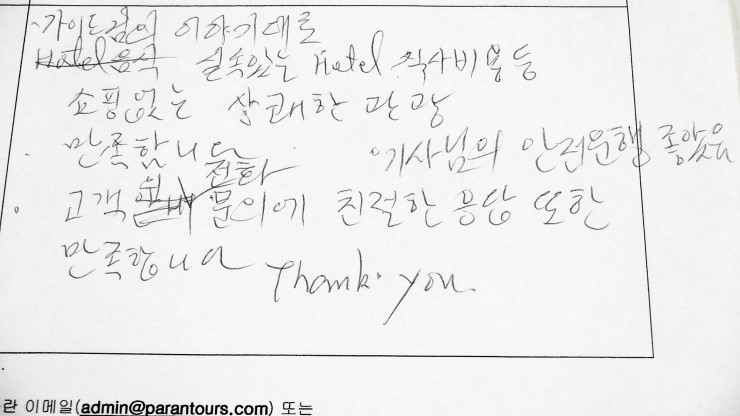 가이드님의 이야기대로
Hotel 음식 실속있는 Hotel 식사비용등
쇼핑없는 상쾌한 관광
만족합니다 기사님의 안전운행 좋았음
전화
고객 문의에 친절한 응답 또한
만족합니다 Thank you.
란 이메일(admin@parantours.com) 또는